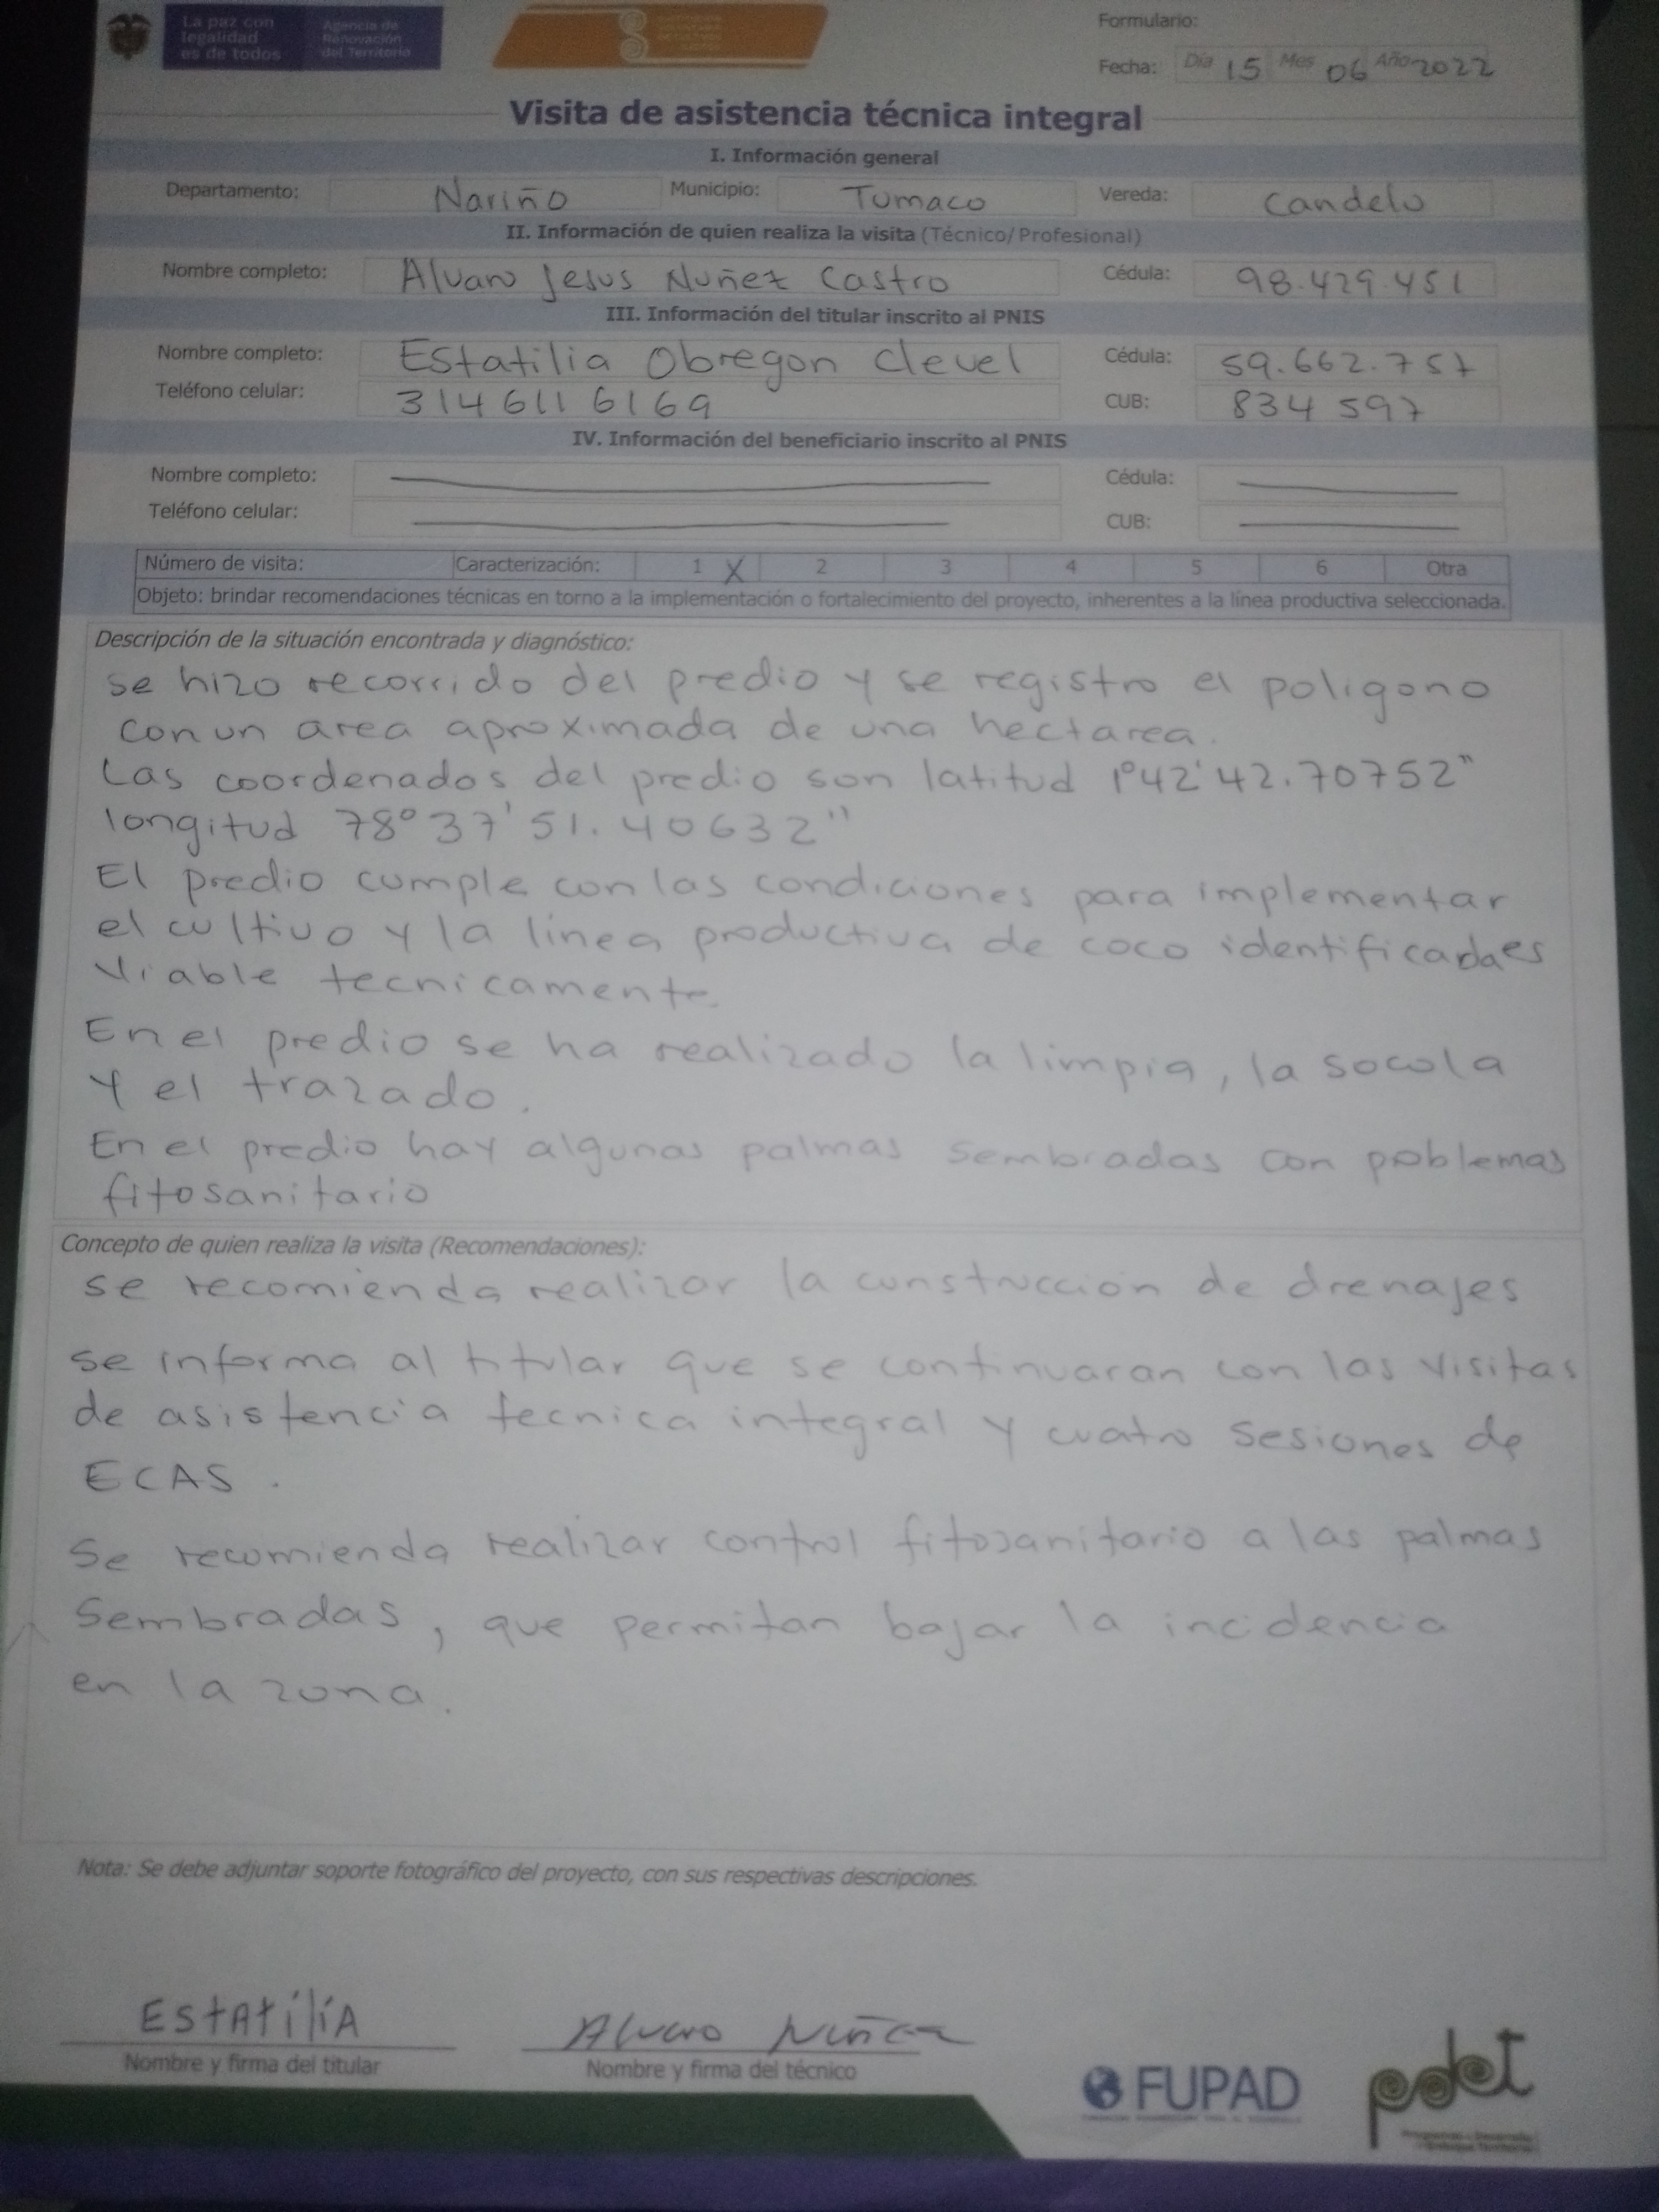 La paz con
legalidad
es de todos
Agencia de
Renovación
del Territorio
Formulario:
Fecha: Día 15 Mes 06 Año 2022
Visita de asistencia técnica integral
I. Información general
Departamento: Nariño Municipio: Tumaco Vereda: Candelo
II. Información de quien realiza la visita (Técnico/Profesional)
Nombre completo: Alvaro Jesus Nuñez Castro Cédula: 98.429.451
III. Información del titular inscrito al PNIS
Nombre completo: Estatilia Obregon Clevel Cédula: 59.662.757
Teléfono celular: 314 611 6169 CUB: 834 597
IV. Información del beneficiario inscrito al PNIS
Nombre completo: Cédula:
Teléfono celular: CUB:
Número de visita: Caracterización: 1 X 2 3 4 5 6 Otra
Objeto: brindar recomendaciones técnicas en torno a la implementación o fortalecimiento del proyecto, inherentes a la línea productiva seleccionada.
Descripción de la situación encontrada y diagnóstico:
se hizo recorrido del predio y se registro el poligono
con un area aproximada de una hectarea.
Las coordenados del predio son latitud 1°42'42.70752"
longitud 78°37'51.40632"
El predio cumple con las condiciones para implementar
el cultivo y la linea productiva de coco identificada es
viable tecnicamente
En el predio se ha realizado la limpia, la socola
y el trazado.
En el predio hay algunas palmas sembradas con problemas
fitosanitario
Concepto de quien realiza la visita (Recomendaciones):
se recomienda realizar la construccion de drenajes
se informa al titular que se continuaran con las visitas
de asistencia tecnica integral y cuatro sesiones de
ECAS.
Se recomienda realizar control fitosanitario a las palmas
sembradas, que permitan bajar la incidencia
en la zona.
Nota: Se debe adjuntar soporte fotográfico del proyecto, con sus respectivas descripciones.
EstAtiliA Alvaro Nuñez
Nombre y firma del titular Nombre y firma del técnico
FUPAD
pdet